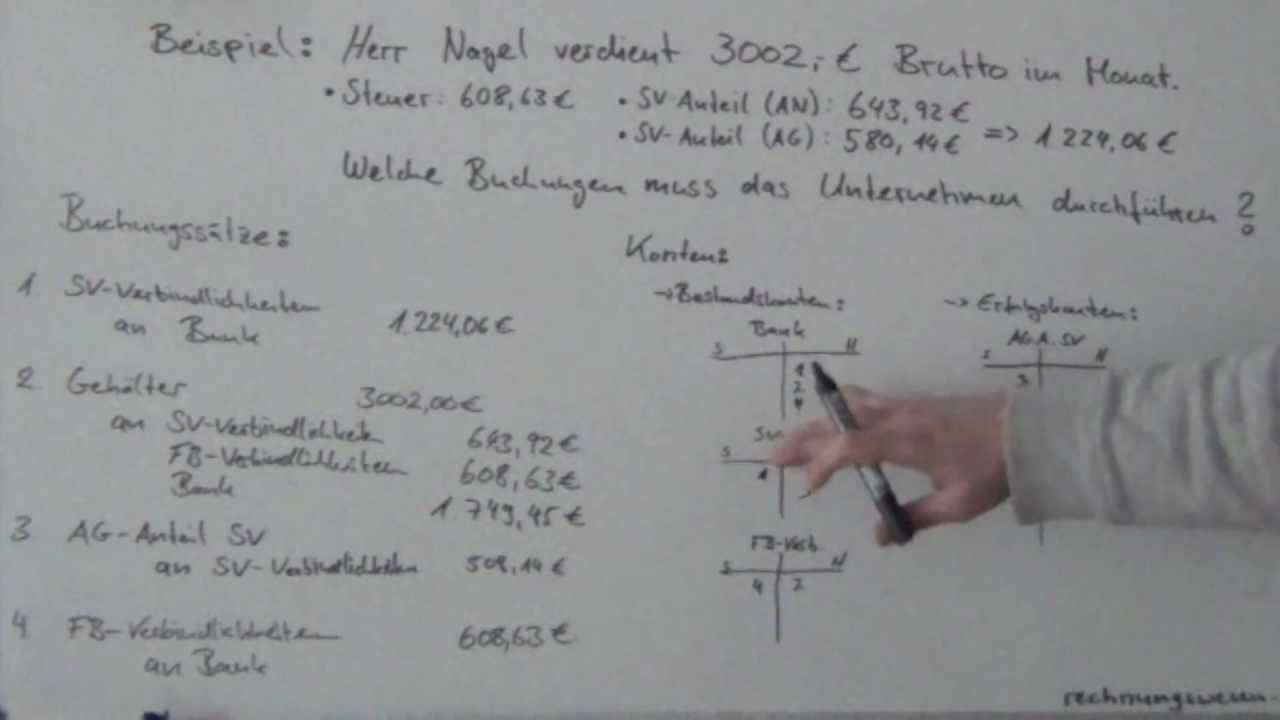 Beispiel: Herr Nagel verdient 3002,- € Brutto im Monat.
• Steuer: 608,63 € • SV Anteil (AN): 643,92 €
• SV-Anteil (AG): 580,14 € => 1.224,06 €
Welche Buchungen muss das Unternehmen durchführen ?
Buchungssätze:
1 SV-Verbindlichkeiten
an Bank 1.224,06 €
2 Gehälter 3002,00 €
an SV-Verbindlichkeiten 643,92 €
FB-Verbindlichkeiten 608,63 €
Bank 1.749,45 €
3 AG-Anteil SV
an SV-Verbindlichkeiten 508,14 €
4 FB-Verbindlichkeiten 608,63 €
an Bank
Konten:
→ Bestandskonten:
Bank
S H
1
2
4
SV
S
1
FB-Verb.
S H
4 2
→ Erfolgskonten:
AG.A. SV
S H
3
rechnungswesen-